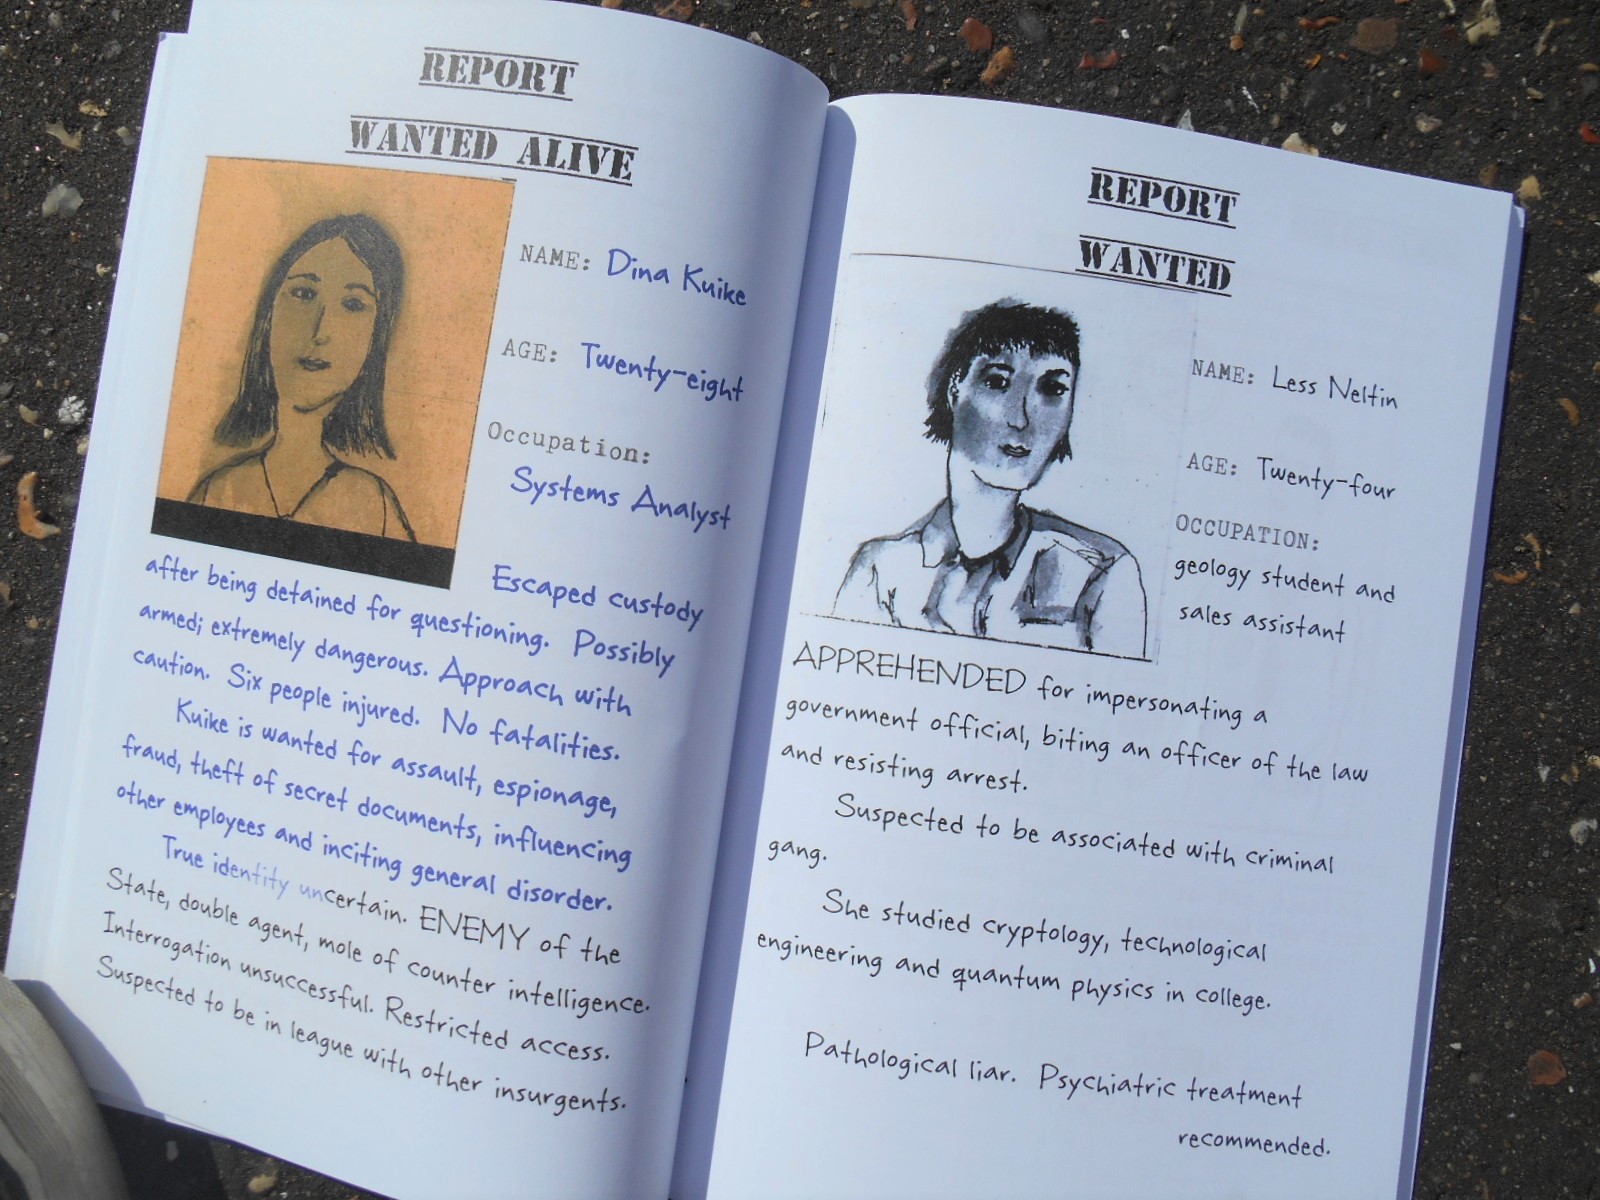 REPORT
WANTED ALIVE
NAME: Dina Kuike
AGE: Twenty-eight
Occupation:
Systems Analyst
Escaped custody
after being detained for questioning. Possibly
armed; extremely dangerous. Approach with
caution. Six people injured. No fatalities.
Kuike is wanted for assault, espionage,
fraud, theft of secret documents, influencing
other employees and inciting general disorder.
True identity uncertain. ENEMY of the
State, double agent, mole of counter intelligence.
Interrogation unsuccessful. Restricted access.
Suspected to be in league with other insurgents.
REPORT
WANTED
NAME: Less Neltin
AGE: Twenty-four
OCCUPATION:
geology student and
sales assistant
APPREHENDED for impersonating a
government official, biting an officer of the law
and resisting arrest.
Suspected to be associated with criminal
gang.
She studied cryptology, technological
engineering and quantum physics in college.
Pathological liar. Psychiatric treatment
recommended.